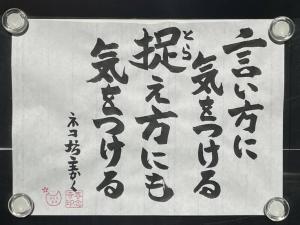 言い方に
気をつける
とら
捉え方にも
気をつける
ネコ坊主かく